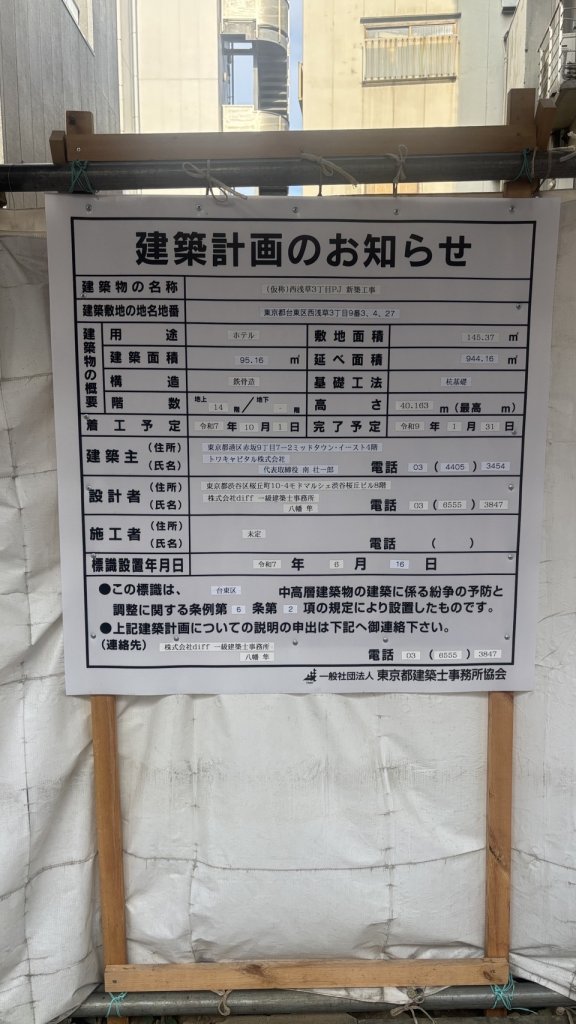 建築計画のお知らせ
建築物の名称 (仮称)西浅草3丁目PJ 新築工事
建築敷地の地名地番 東京都台東区西浅草3丁目9番3、4、27
建築物の概要
用途 ホテル 敷地面積 145.37 ㎡
建築面積 95.16 ㎡ 延べ面積 944.16 ㎡
構造 鉄骨造 基礎工法 杭基礎
階数 地上 14 階/地下 - 階 高さ 40.163 m(最高 m)
着工予定 令和7 年 10 月 1 日 完了予定 令和9 年 1 月 31 日
建築主 (住所) 東京都港区赤坂9丁目7-2ミッドタウン・イースト4階
(氏名) トワキャピタル株式会社
代表取締役 南 壮一郎 電話 03 ( 4405 ) 3454
設計者 (住所) 東京都渋谷区桜丘町10-4モドマルシェ渋谷桜丘ビル8階
(氏名) 株式会社diff 一級建築士事務所
八幡 隼 電話 03 ( 6555 ) 3847
施工者 (住所)
(氏名) 未定 電話 ( )
標識設置年月日 令和7 年 6 月 16 日
●この標識は、 台東区 中高層建築物の建築に係る紛争の予防と
調整に関する条例第 6 条第 2 項の規定により設置したものです。
●上記建築計画についての説明の申出は下記へ御連絡下さい。
(連絡先) 株式会社diff 一級建築士事務所
八幡 隼 電話 03 ( 6555 ) 3847
一般社団法人 東京都建築士事務所協会